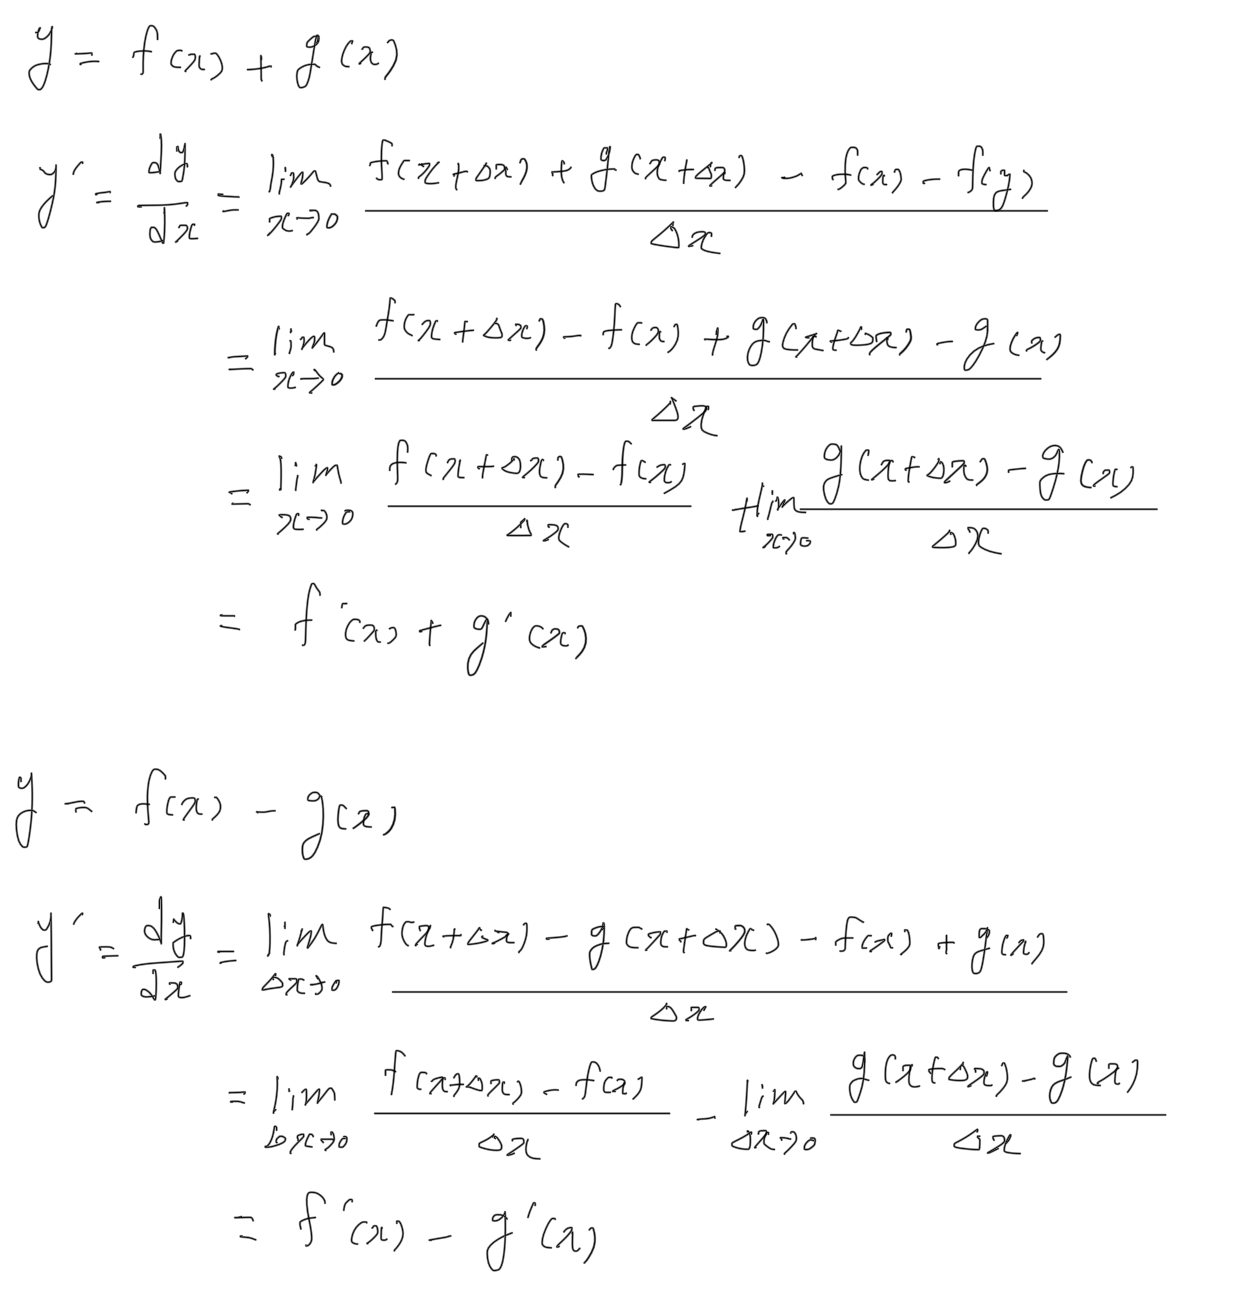 y = f(x) + g(x)
y' = dy/dx = lim x→0 (f(x+Δx) + g(x+Δx) - f(x) - f(y))/Δx
= lim x→0 (f(x+Δx) - f(x) + g(x+Δx) - g(x))/Δx
= lim x→0 (f(x+Δx) - f(x))/Δx + lim x→0 (g(x+Δx) - g(x))/Δx
= f'(x) + g'(x)
y = f(x) - g(x)
y' = dy/dx = lim Δx→0 (f(x+Δx) - g(x+Δx) - f(x) + g(x))/Δx
= lim Δx→0 (f(x+Δx) - f(x))/Δx - lim Δx→0 (g(x+Δx) - g(x))/Δx
= f'(x) - g'(x)